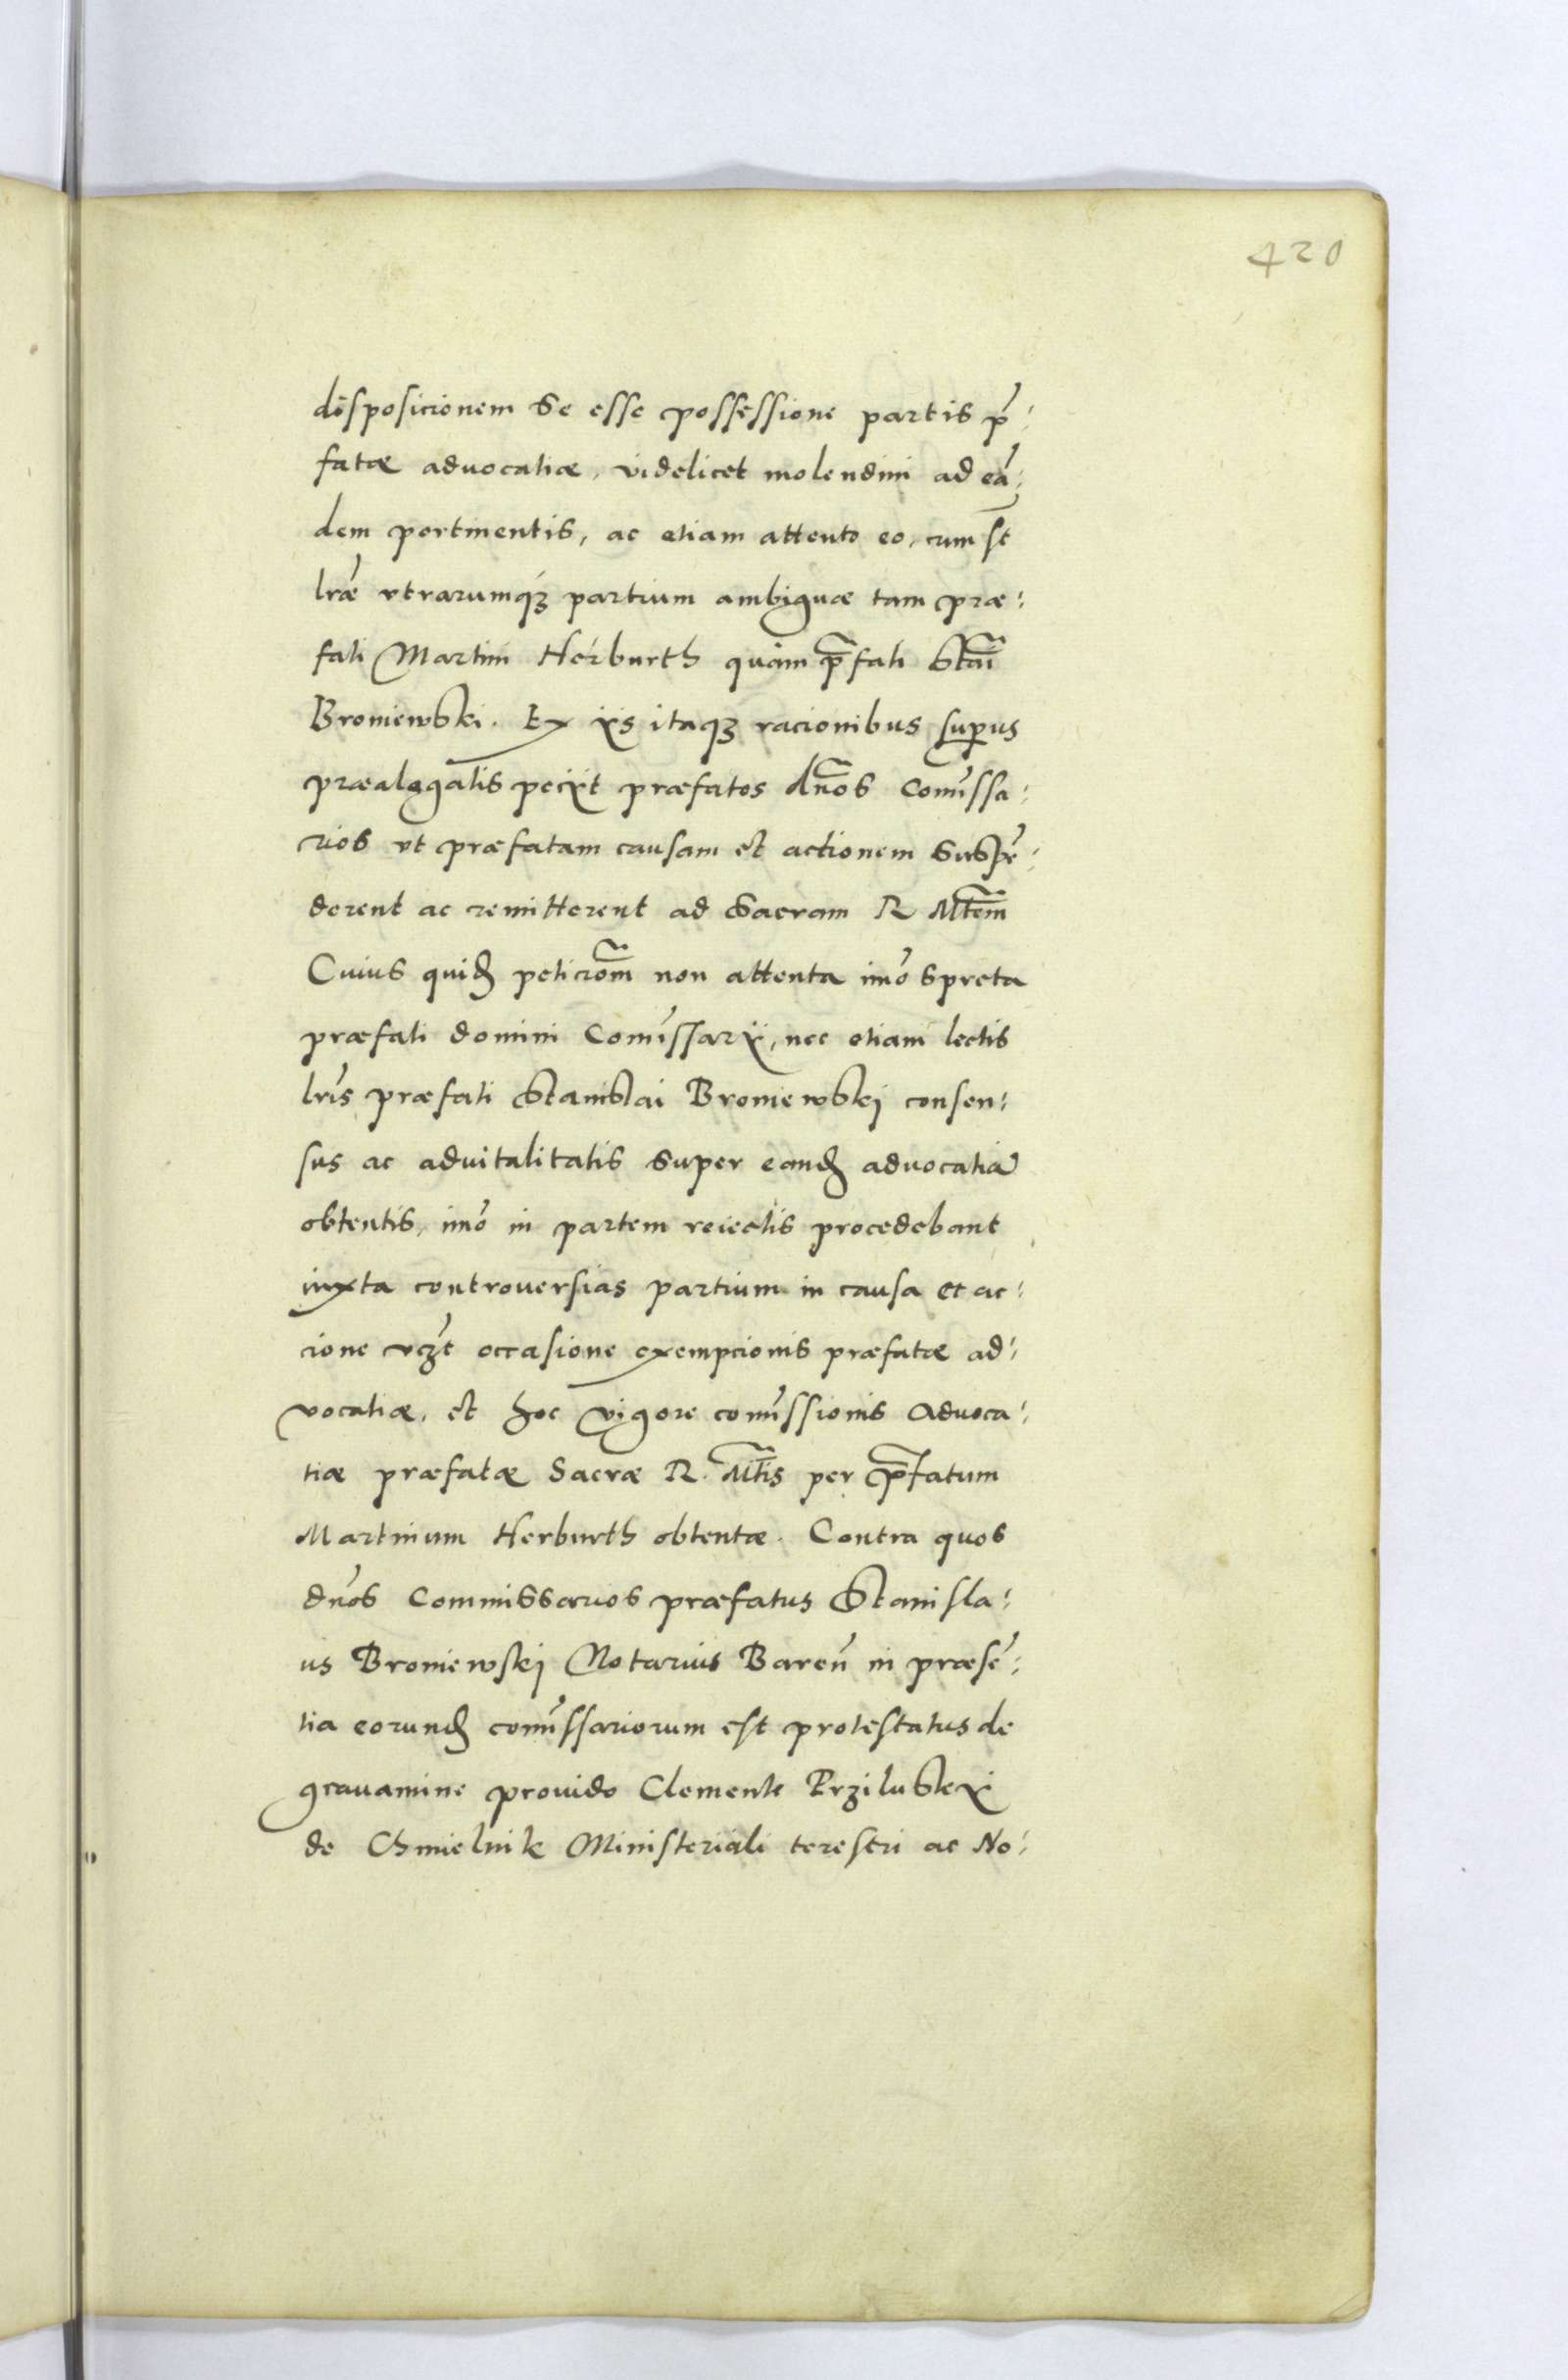 420
disposicionem se esse possessione partis p̃:
fatæ aduocatiæ, videlicet molendini ad eã:
dem pertinentis, ac etiam attento eo, cum st̃
lræ̃ vtrarumqꝫ partium ambiguæ tam præ:
fati Martini Herburth quàm p̃fati Stãi
Broniewski. Ex ijs itaqꝫ racionibus suꝑius
præalegatis pecijt præfatos dños Com̃issa:
rios vt præfatam causam et actionem suspẽ:
derent ac remitterent ad Sacram R Mt̃em
Cuius quidẽ peticiom̃ non attenta im̃o spreta
præfati domini Com̃issarij, nec etiam lectis
lrĩs præfati Stanislai Broniewskj consen:
sus ac aduitalitatis super eandẽ aduocatiã
obtentis, im̃o in partem reiectis procedebant
iuxta controuersias partium in causa et ac:
cione vꝫt occasione exempcionis præfatæ ad:
vocatiæ, et hoc vigore com̃issionis aduoca:
tiæ præfatæ Sacræ R. Mt̃is per p̃fatum
Martinum Herburth obtentæ. Contra quos
dños Commissarios præfatus Stanisla:
us Broniewskj Notarius Bareñ in præsẽ:
tia eorundẽ com̃issariorum est protestatus de
grauamine prouido Clemente Prziluskij
de Chmielnik Ministeriali terestri ac No: